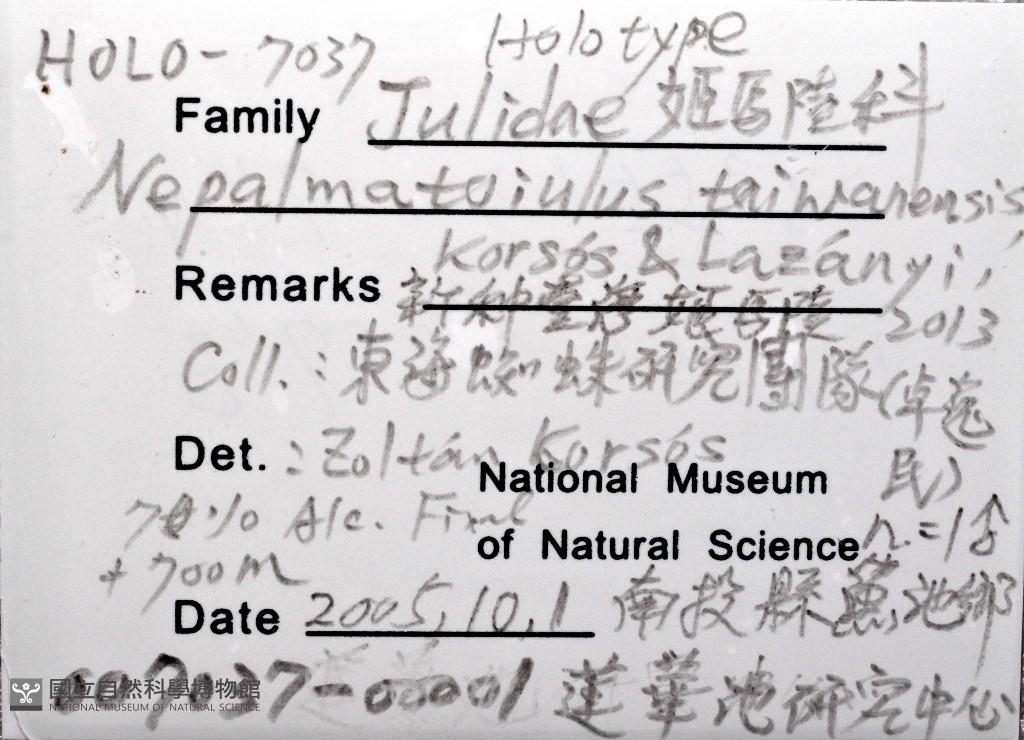 HOLO-7037 Holotype
Family Julidae 姬馬陸科
Nepalmatoiulus taiwanensis
Korsós & Lazányi, 2013
Remarks 新種臺灣姬馬陸
Coll.: 東海蜘蛛研究團隊(卓逸民)
Det.: Zoltán Korsós
National Museum
70% Alc. Final
of Natural Science n.=1♂
+700m
Date 2005,10,1 南投縣魚池鄉
7037-00001 蓮華池研究中心
國立自然科學博物館
NATIONAL MUSEUM OF NATURAL SCIENCE